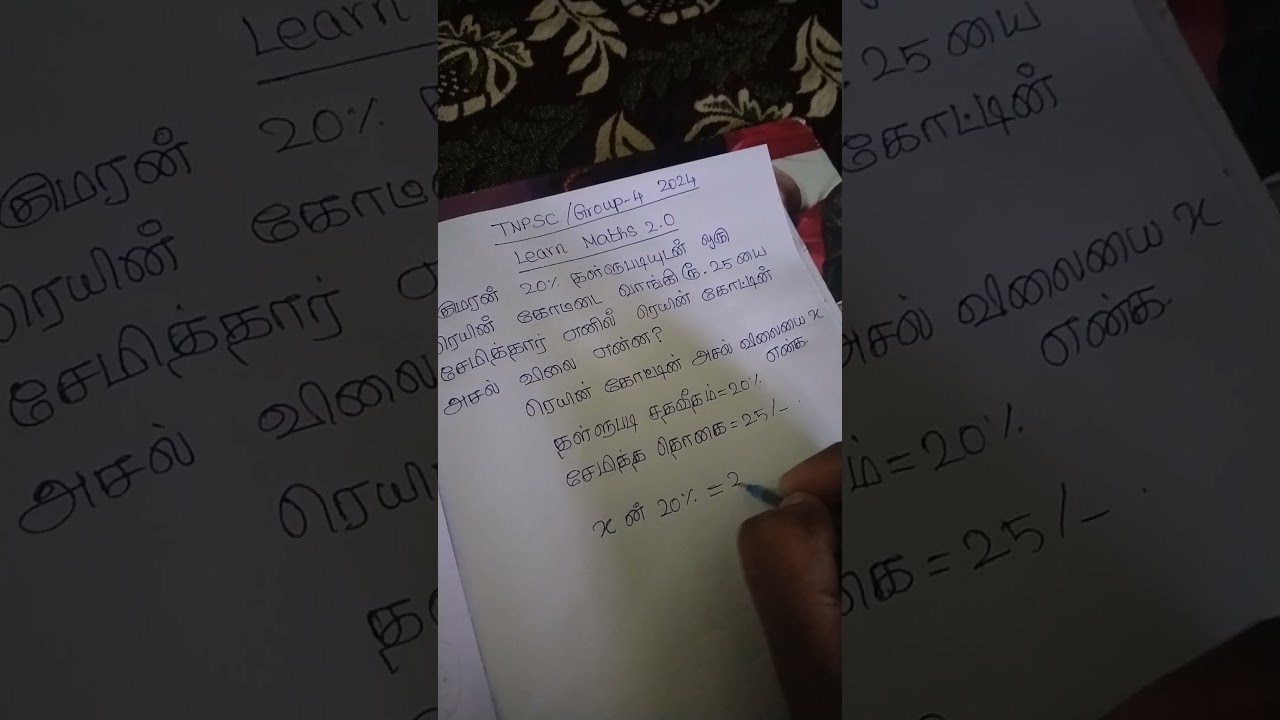 TNPSC/Group-4 2024
Learn Maths 2.0
குமரன் 20% தள்ளுபடியுடன் ஒரு
ரெயின் கோட்டை வாங்கி ரூ.25 யை
சேமித்தார் எனில் ரெயின் கோட்டின்
அசல் விலை என்ன?
ரெயின் கோட்டின் அசல் விலையை x
என்க.
தள்ளுபடி சதவீதம்=20%
சேமித்த தொகை=25/-.
x ன் 20% = 2